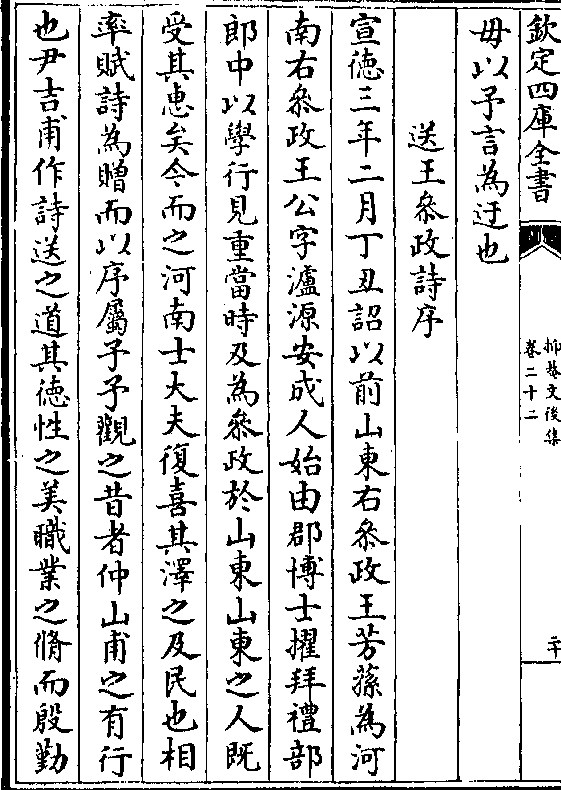 欽定四庫全書
抑菴文後集
卷二十二
二十
毋以予言為迂也
送王叅政詩序
宣德三年二月丁丑詔以前山東右叅政王芳蓀為河
南右叅政王公字瀘源安成人始由郡博士擢拜禮部
郎中以學行見重當時及為叅政於山東山東之人既
受其惠矣今而之河南士大夫復喜其澤之及民也相
率賦詩為贈而以序屬予予觀之昔者仲山甫之有行
也尹吉甫作詩送之道其徳性之美職業之脩而殷勤